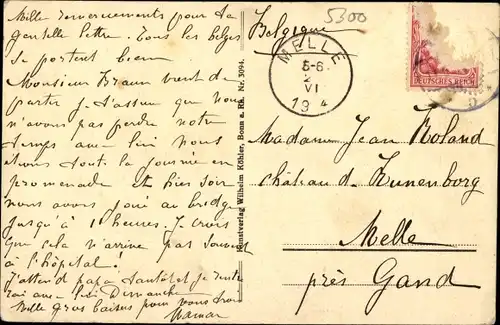 Mille remerciements pour ta
gentille lettre. Tous les belges
se portent bien
Monsieur Braun vient de
partir. J't'assure que nous
n'avons pas perdre notre
temps avec lui. Nous
avons tout la journée en
promenade et hier soir
nous avons joué au bridge
jusqu'à 11 heures. Je crois
que cela n'arrive pas souvent
à l'hôpital!
J'attend papa tantôt et je rentre
rai avec lui Dimanche
Mille gros baisers pour vous trois
Maman
Kunstverlag Wilhelm Köhler, Bonn a. Rh. Nr. 3094.
Belgique
5300
MELLE
5-6.
2
VI
19 4
DEUTSCHES REICH
Madame Jean Roland
château d. Kunenborg
Melle
près Gand